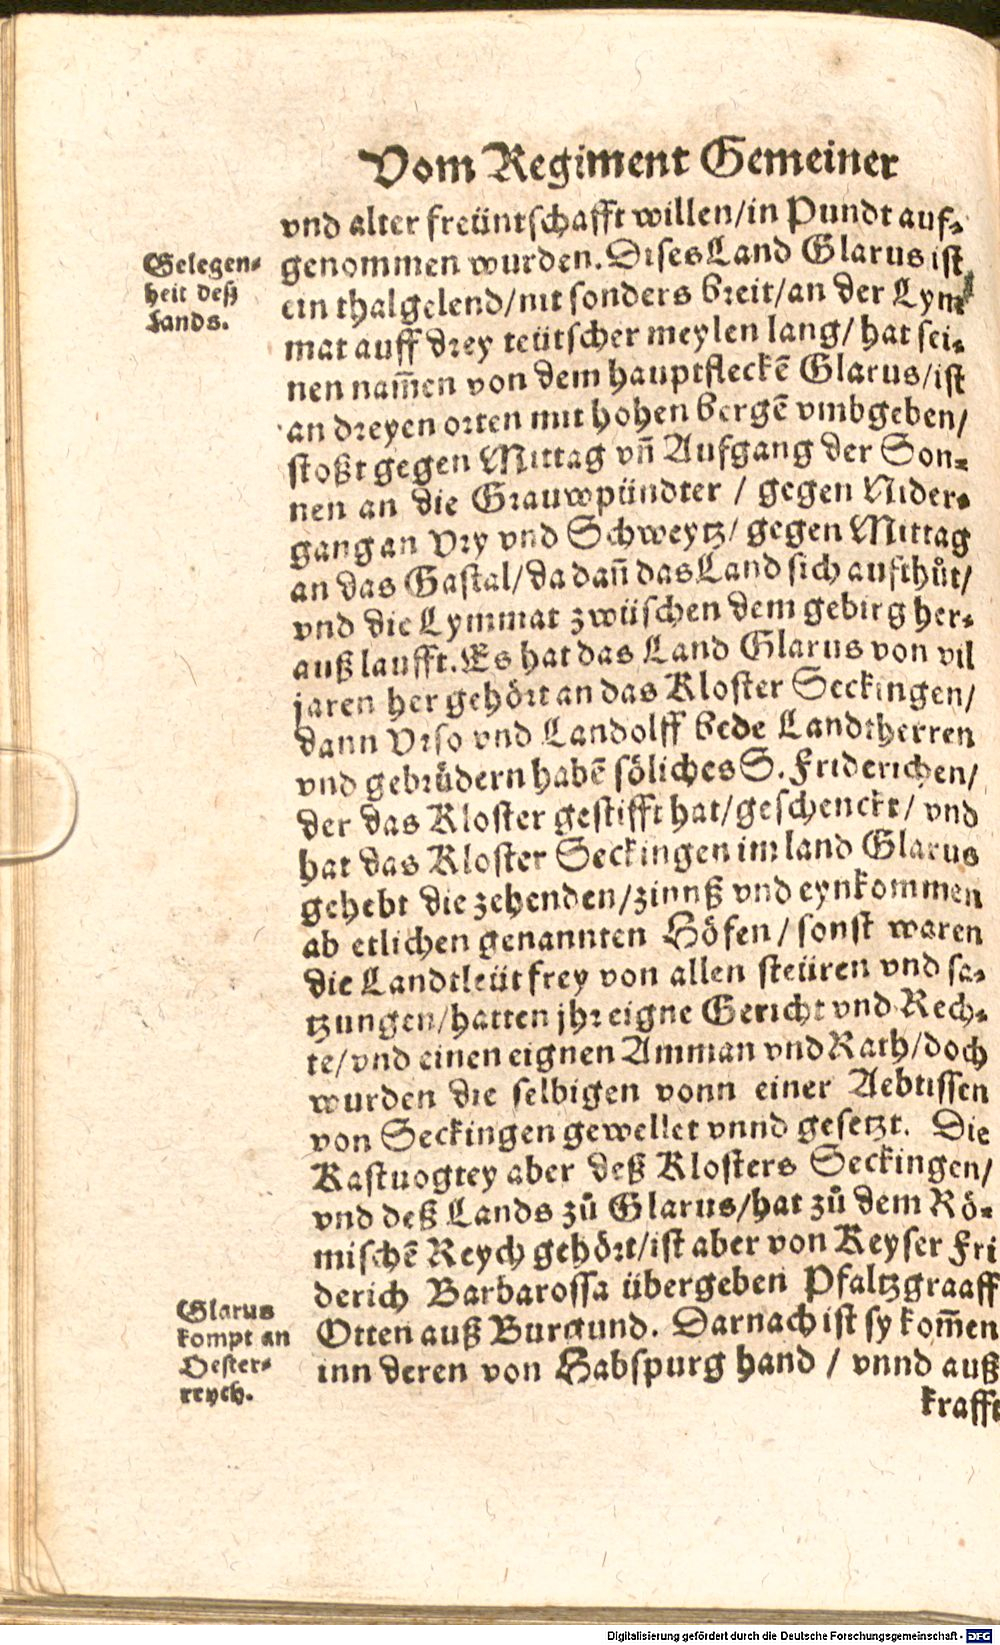 Vom Regiment Gemeiner
vnd alter freüntschafft willen/in Pundt auf-
genommen wurden. Dises Land Glarus ist
ein thalgelend/nit sonders breit/an der Lym
mat auff drey teütscher meylen lang/ hat sei-
nen nam̄en von dem hauptfleckē Glarus/ist
an dreyen orten mit hohen bergē vmbgeben/
stoßt gegen Mittag vn̄ Aufgang der Son-
nen an die Grauwpündter / gegen Nider-
gang an Vry vnd Schweytz/ gegen Mittag
an das Gastal/da dan̄ das Land sich aufthůt/
vnd die Lymmat zwüschen dem gebirg her-
auß laufft. Es hat das Land Glarus von vil
jaren her gehört an das Kloster Seckingen/
dann Vrso vnd Landolff bede Landtherren
vnd gebrůdern habē söliches S. Friderichen/
der das Kloster gestifft hat/geschenckt/ vnd
hat das Kloster Seckingen im land Glarus
gehebt die zehenden/zinnß vnd eynkommen
ab etlichen genannten Höfen/ sonst waren
die Landtleüt frey von allen steüren vnd sa-
tzungen/hatten jhr eigne Gericht vnd Rech-
te/vnd einen eignen Amman vnd Rath/doch
wurden die selbigen vonn einer Aebtissen
von Seckingen gewellet vnnd gesetzt. Die
Kastuogtey aber deß Klosters Seckingen/
vnd deß Lands zů Glarus/hat zů dem Rö-
mischē Reych gehört/ist aber von Keyser Fri
derich Barbarossa übergeben Pfaltzgraaff
Otten auß Burgund. Darnach ist sy kom̄en
inn deren von Habspurg hand / vnnd auß
krafft
Gelegen-
heit deß
Lands.
Glarus
kompt an
Oester-
reych.
Digitalisierung gefördert durch die Deutsche Forschungsgemeinschaft - DFG